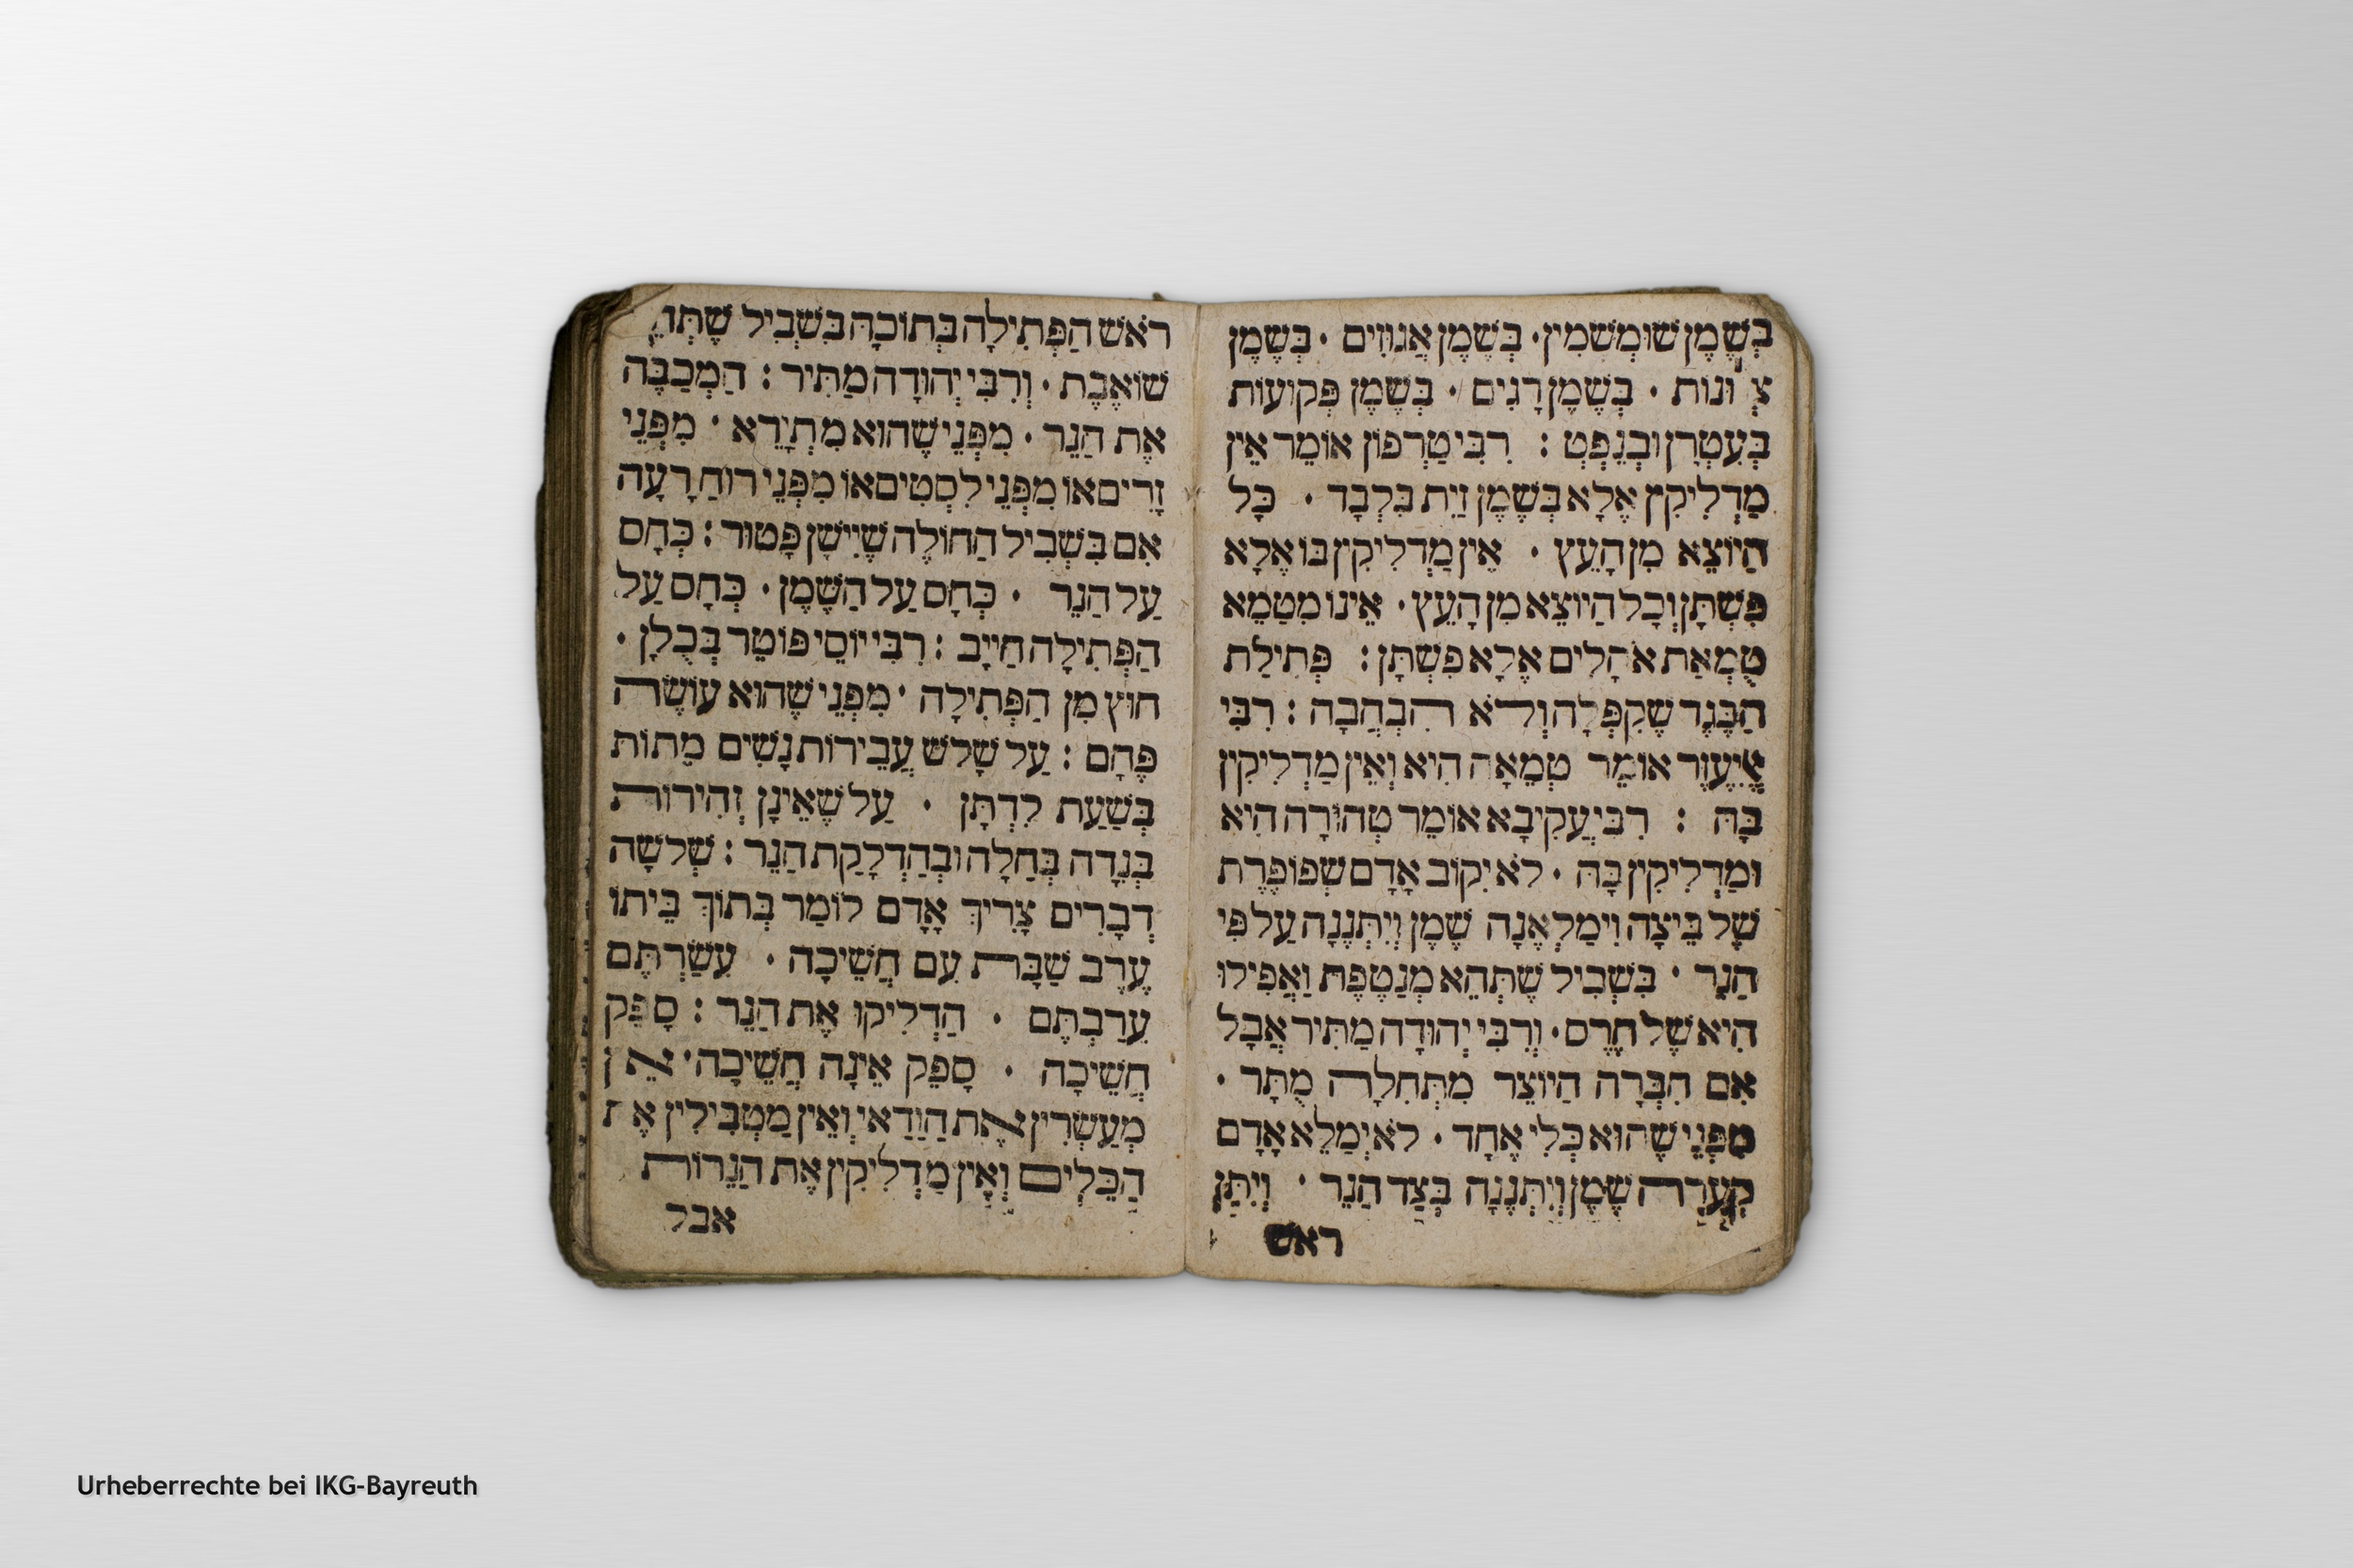 בְּשֶׁמֶן שׁוּמְשְׁמִין · בְּשֶׁמֶן אֱגוֹזִים · בְּשֶׁמֶן
בְּשֶׁמֶן דָגִים · בְּשֶׁמֶן פְּקוּעוֹת
בְּעִטְרָן וּבְנֵפְטְ : רִבִּי טַרְפוֹן אוֹמֵר אֵין
מַדְלִיקִין אֶלָא בְּשֶׁמֶן זַיִת בִּלְבָד · כָּל
הַיוֹצֵא מִן הָעֵץ · אֵין מַדְלִיקִין בּוֹ אֶלָא
פִּשְׁתָּן וְכָל הַיוֹצֵא מִן הָעֵץ · אֵינוֹ מִטַמֵא
טֻמְאַת אֹהָלִים אֶלָא פִּשְׁתָּן : פְּתִילַת
הַבֶּגֶד שֶׁקִפְּלָהּ וְלֹא הִבְהֲבָהּ : רִבִּי
אֱלִיעֶזֶר אוֹמֵר טְמֵאָה הִיא וְאֵין מַדְלִיקִין
בָּהּ : רִבִּי עֲקִיבָא אוֹמֵר טְהוֹרָה הִיא
וּמַדְלִיקִין בָּהּ · לֹא יִקוֹב אָדָם שְׁפוֹפֶרֶת
שֶׁל בֵּיצָה וִימַלְאֶנָה שֶׁמֶן וְיִתְּנֶנָה עַל פִּי
הַנֵר · בִּשְׁבִיל שֶׁתְּהֵא מְנַטֶפֶת וַאֲפִילוּ
הִיא שֶׁל חֶרֶס · וְרִבִּי יְהוּדָה מַתִּיר אֲבָל
אִם חִבְּרָהּ הַיוֹצֵר מִתְּחִלָה מֻתָּר ·
מִפְּנֵי שֶׁהוּא כְּלִי אֶחָד · לֹא יְמַלֵא אָדָם
קְעָרָה שֶׁמֶן וְיִתְּנֶנָה בְּצַד הַנֵר · וְיִתֵּן
ראש
רֹאשׁ הַפְּתִילָה בְּתוֹכָהּ בִּשְׁבִיל שֶׁתְּהֵא
שׁוֹאֶבֶת · וְרִבִּי יְהוּדָה מַתִּיר : הַמְכַבֶּה
אֶת הַנֵר · מִפְּנֵי שֶׁהוּא מִתְיָרֵא · מִפְּנֵי
זָרִים אוֹ מִפְּנֵי לִסְטִים אוֹ מִפְּנֵי רוּחַ רָעָה
אִם בִּשְׁבִיל הַחוֹלֶה שֶׁיִישָׁן פָּטוּר : כְּחָס
עַל הַנֵר · כְּחָס עַל הַשֶׁמֶן · כְּחָס עַל
הַפְּתִילָה חַיָיב : רִבִּי יוֹסֵי פּוֹטֵר בְּכֻלָן ·
חוּץ מִן הַפְּתִילָה · מִפְּנֵי שֶׁהוּא עוֹשֶׂה
פֶּחָם : עַל שָׁלֹשׁ עֲבֵירוֹת נָשִׁים מֵתוֹת
בְּשָׁעַת לִדְתָּן · עַל שֶׁאֵינָן זְהִירוֹת
בְּנִדָה בְּחַלָה וּבְהַדְלָקַת הַנֵר : שְׁלֹשָׁה
דְבָרִים צָרִיךְ אָדָם לוֹמַר בְּתוֹךְ בֵּיתוֹ
עֶרֶב שַׁבָּת עִם חֲשֵׁיכָה · עִשַׂרְתֶּם
עֵרַבְתֶּם · הַדְלִיקוּ אֶת הַנֵר : סָפֵק
חֲשֵׁיכָה · סָפֵק אֵינָהּ חֲשֵׁיכָה · אֵין
מְעַשְׂרִין אֶת הַוַדַאי וְאֵין מַטְבִּילִין אֶת
הַכֵּלִים וְאֵין מַדְלִיקִין אֶת הַנֵרוֹת
אבל
Urheberrechte bei IKG-Bayreuth